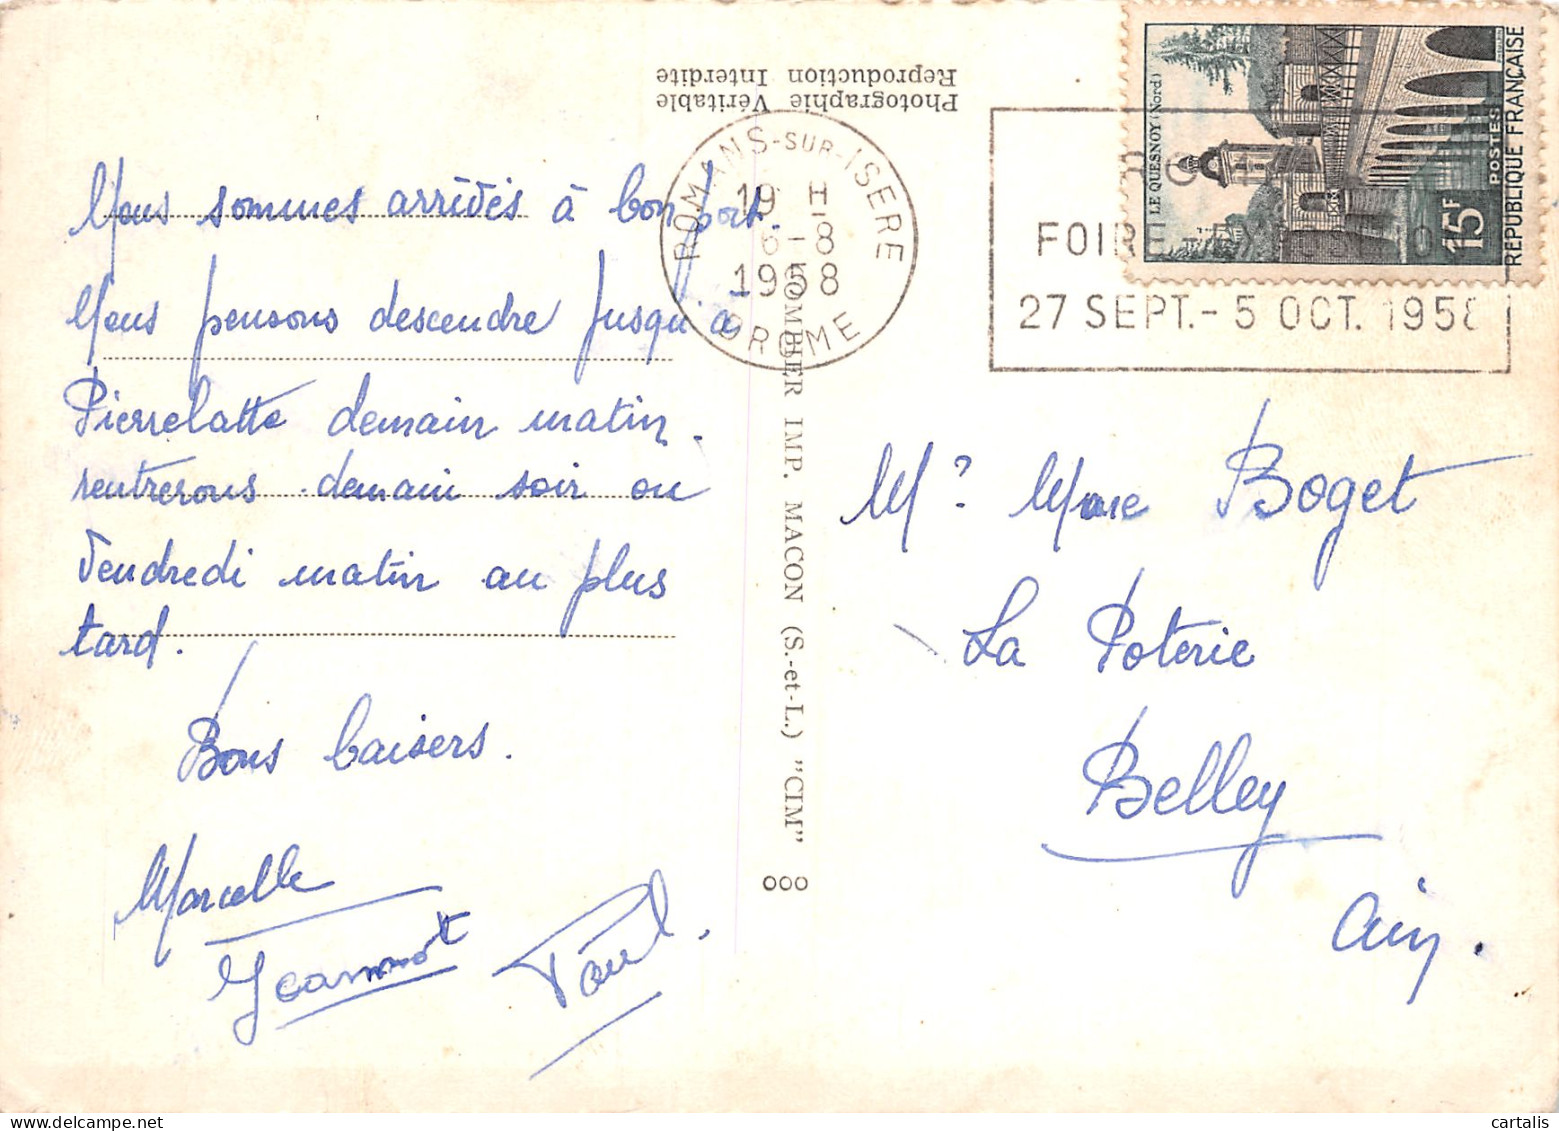 Photographie Véritable
Reproduction Interdite
ROMANS-SUR-ISERE
19 H
6 -8
1958
DROME
FOIRE
27 SEPT. - 5 OCT. 1958
LE QUESNOY (Nord)
15F
POSTES
RÉPUBLIQUE FRANÇAISE
Nous sommes arrivés à bon port.
Nous pensons descendre jusqu'à
Pierrelatte demain matin.
rentrerons demain soir ou
Vendredi matin au plus
tard.
Bons baisers.
Marcelle
Jeannot
Paul.
COMBIER IMP. MACON (S.-et-L.) "CIM"
Boget
La Poterie
Belley
Ain.
cartalis